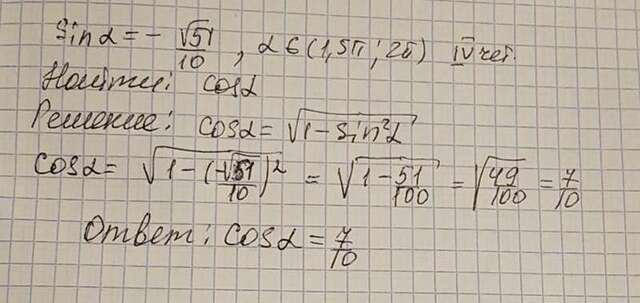 Sinα = - √51/10 , α ∈ (1,5π; 2π) IV чет.
Найти: cosα
Решение: cosα = √(1 - sin²α)
cosα = √(1 - (-√51/10)²) = √(1 - 51/100) = √(49/100) = 7/10
Ответ: cosα = 7/10